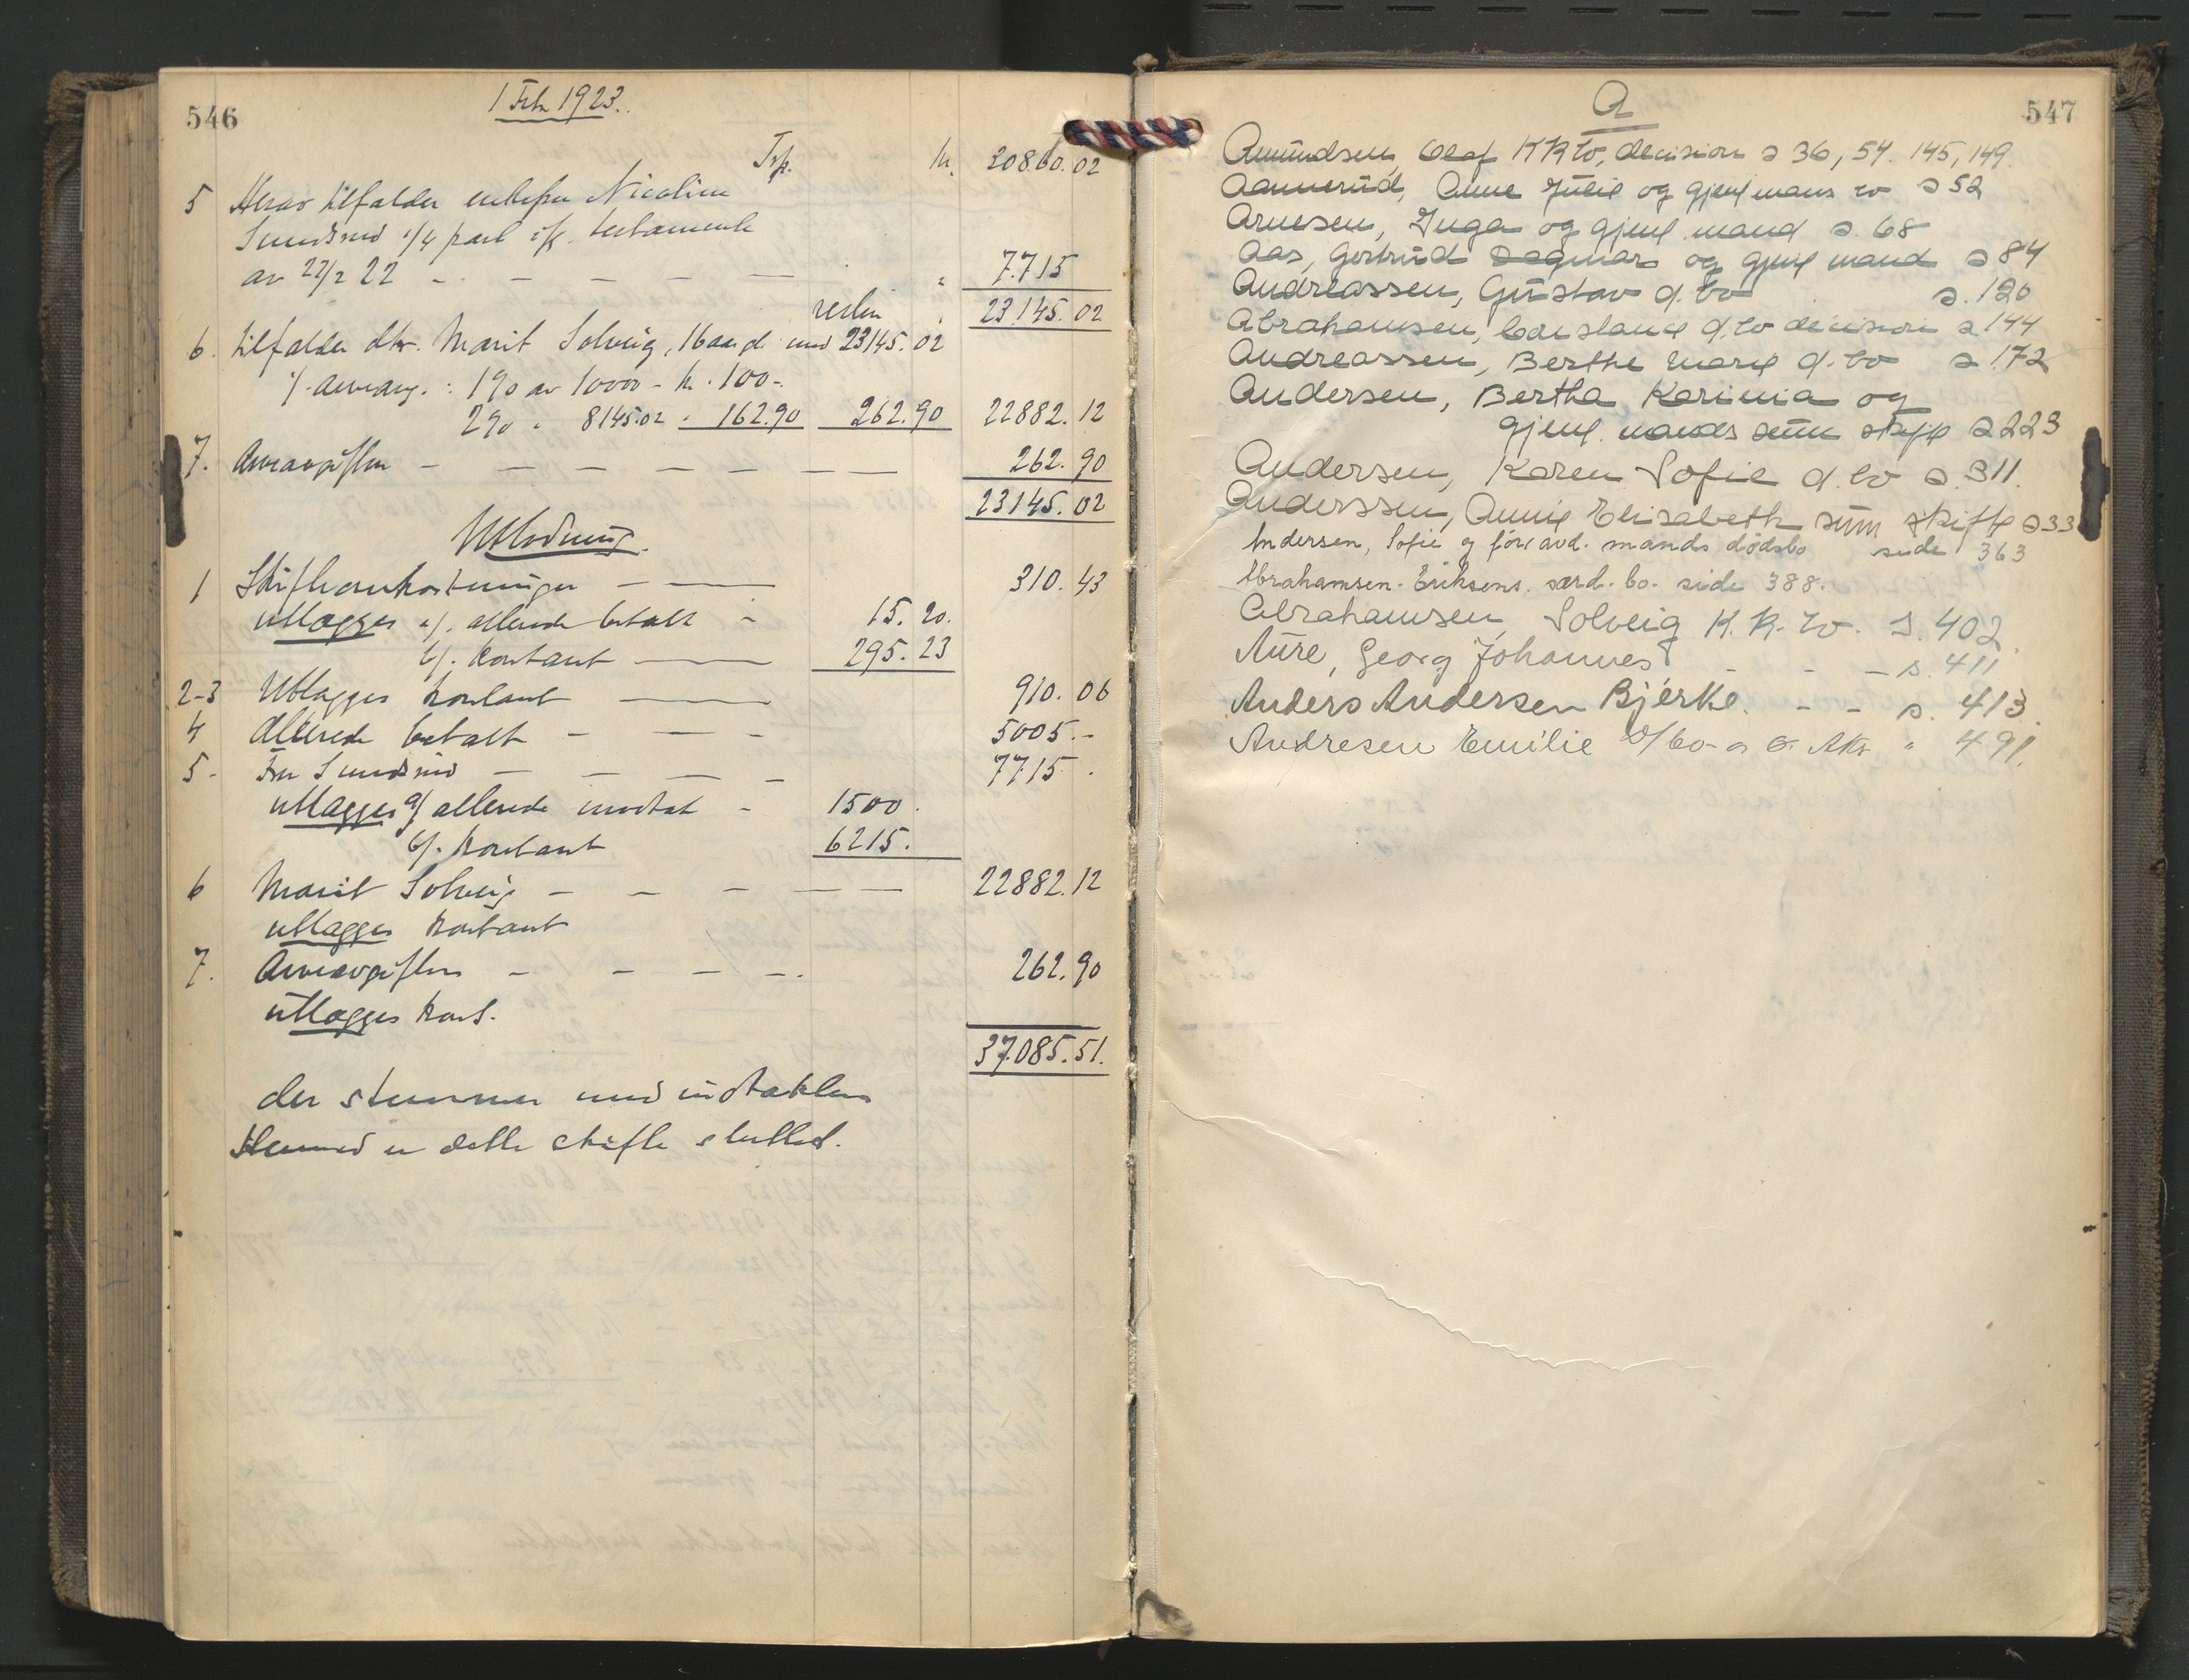 546
1 Febr 1923.
Trp. kr. 30860.02
5 Herav tilfalder enkefru Nicoline
Sundsrud 1/4 part ifl. testamente
av 22/2 22 - - - - - " 7.715
resten " 23.145.02
6. tilfalder dtr. Marit Solveig, 16 aar gl. med 23145.02
÷ arveavg. : 1% av 10000 - kr. 100-
2% " 8145.02 " 162.90 262.90 22882.12
7. Arveavgiften - - - - - - - 262.90
23145.02
Utlodning.
1 Skifteomkostninger - - 310.43
utlægges a/. allerede betalt - 15.20.
b/. kontant - 295.23
2-3 Utlægges kontant - 910.06
4 Allerede betalt - - - 5005.-
5- Fru Sundsrud - - - - 7715.
utlægges a/ allerede mottat - 1500.
b/. kontant 6215.
6 Marit Solveig - - - - - 22882.12
utlægges kontant
7. Arveavgiften - - - -. 262.90
utlægges kont.
37.085.51.
der stemmer med indtækten
Hermed er dette skifte sluttet.
547
A
Amundsen, Olaf KKbo, decision s 36, 54. 145, 149.
Aamerud, Anne Julie og gjenl mans bo s 52
Arnesen, Inga og gjenl. mand s. 68
Aas, Gertrud Dagmar og gjenl mand s 84
Andreassen, Gustav d. bo s. 120
Abrahamsen, Constance d. bo decision s 144
Andreassen, Berthe Marie d. bo s 172
Andersen, Bertha Karinia og
gjenl. mands sum skifte s 223
Andersen, Karen Sofie d. bo s. 311.
Anderssen, Annie Elisabeth sum skifte s 33
Andersen, Sofie og forv avd. mands dødsbo side 363
Abrahamsen-Eriksens. særd. bo. side 388.
Abrahamsen, Solveig K.K. bo. s. 402.
Aure, Georg Johannes - - - s. 411
Anders Andersen Bjerke. - - s. 413.
Andresen Emilie d/bo " 491.